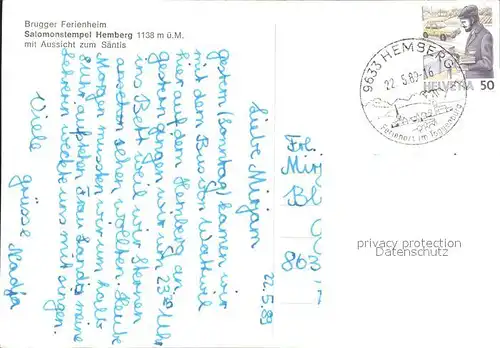 Brugger Ferienheim
Salomonstempel Hemberg 1138 m ü.M.
mit Aussicht zum Säntis
9633 HEMBERG
22.5.89-16
Ferienort im Toggenburg
HELVETIA 50
22.5.89
Liebe Mirjam
Gestern (Sonntag) kamen wir
mit dem Bus von Wattwil
hier auf dem Hemberg an.
Gestern gingen wir um 23.00 Uhr
ins Bett weil wir Sternen
ansehen wollten. Heute
Morgen mussten wir um halb
aufstehen Frau Landis meine
Lehrerin weckte uns mit singen.
Viele
grüsse Nadja
Frl.
Mir
Bl
863
privacy protection
Datenschutz